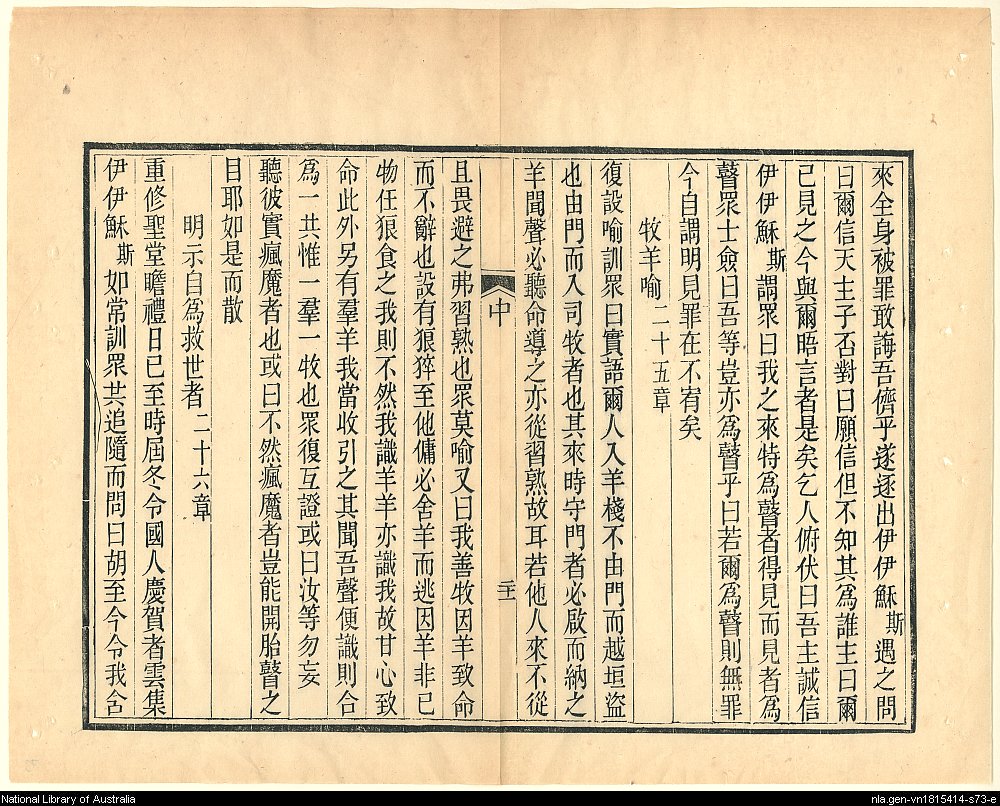 來全身被罪敢誨吾儕乎遂逐出伊伊穌斯遇之問
曰爾信天主子否對曰願信但不知其為誰主曰爾
己見之今與爾晤言者是矣乞人俯伏曰吾主誠信
伊伊穌斯謂眾曰我之來特為瞽者得見而見者為
瞽眾士僉曰吾等豈亦為瞽乎曰若爾為瞽則無罪
今自謂明見罪在不宥矣
牧羊喻 二十五章
復設喻訓眾曰實語爾人入羊棧不由門而越垣盜
也由門而入司牧者也其來時守門者必啟而納之
羊聞聲必聽命導之亦從習熟故耳若他人來不從
中 二十一
且畏避之弗習熟也眾莫喻又曰我善牧因羊致命
而不辭也設有狼猝至他傭必舍羊而逃因羊非已
物任狼食之我則不然我識羊羊亦識我故甘心致
命此外另有羣羊我當收引之其聞吾聲便識則合
為一共惟一羣一牧也眾復互證或曰汝等勿妄
聽彼實瘋魔者也或曰不然瘋魔者豈能開胎瞽之
目耶如是而散
明示自為救世者 二十六章
重修聖堂瞻禮日已至時屆冬令國人慶賀者雲集
伊伊穌斯如常訓眾共追隨而問曰胡至今令我含
National Library of Australia
nla.gen-vn1815414-s73-e